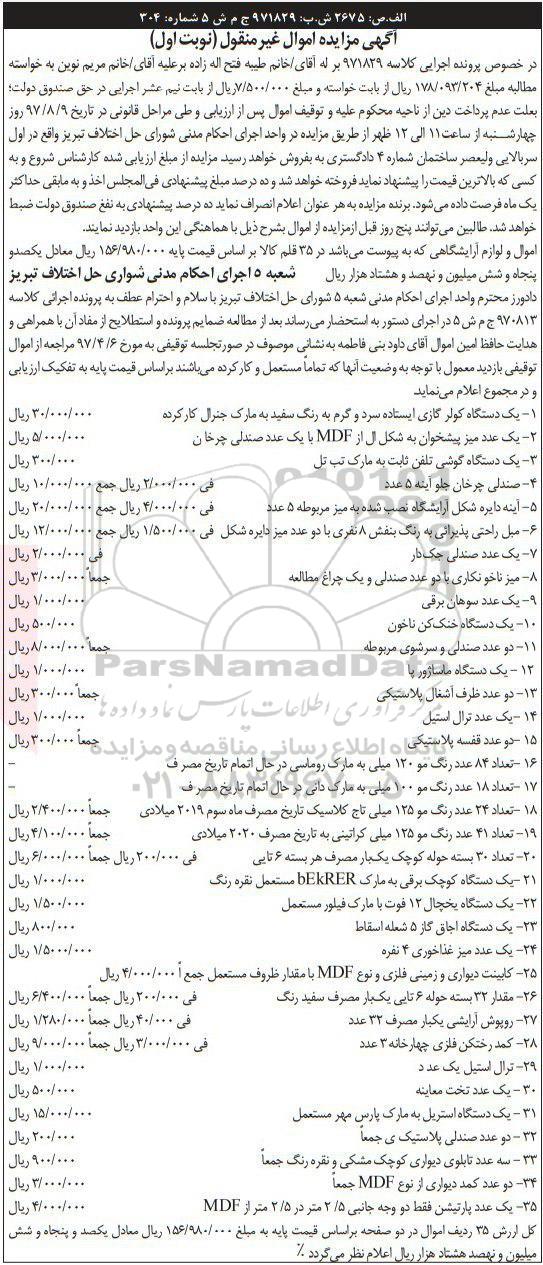 الف.ص: ۲۶۷۵ ش.ب: ۹۷۱۸۲۹ ج م ش ۵ شماره: ۳۰۴
آگهی مزایده اموال غیر منقول (نوبت اول)
در خصوص پرونده اجرایی کلاسه ۹۷۱۸۲۹ بر له آقای/خانم طیبه فتح اله زاده برعلیه آقای/خانم مریم نوین به خواسته
مطالبه مبلغ ۱۷۸/۰۹۳/۲۰۴ ریال از بابت خواسته و مبلغ ۷/۵۰۰/۰۰۰ریال از بابت نیم عشر اجرایی در حق صندوق دولت؛
بعلت عدم پرداخت دین از ناحیه محکوم علیه و توقیف اموال پس از ارزیابی و طی مراحل قانونی در تاریخ ۹۷/۸/۹ روز
چهارشنبه از ساعت۱۱ الی ۱۲ ظهر از طریق مزایده در واحد اجرای احکام مدنی شورای حل اختلاف تبریز واقع در اول
سربالایی ولیعصر ساختمان شماره ۴ دادگستری به بفروش خواهد رسید. مزایده از مبلغ ارزیابی شده کارشناس شروع و به
کسی که بالاترین قیمت را پیشنهاد نماید فروخته خواهد شد و ده درصد مبلغ پیشنهادی فی‌المجلس اخذ و به مابقی حداکثر
یک ماه فرصت داده می‌شود. برنده مزایده به هر عنوان اعلام انصراف نماید ده درصد پیشنهادی به نفع صندوق دولت ضبط
خواهد شد. طالبین می‌توانند پنج روز قبل ازمزایده از اموال بشرح ذیل با هماهنگی این واحد بازدید نمایند.
اموال و لوازم آرایشگاهی که به پیوست می‌باشد در ۳۵ قلم کالا بر اساس قیمت پایه ۱۵۶/۹۸۰/۰۰۰ ریال معادل یکصدو
پنجاه و شش میلیون و نهصد و هشتاد هزار ریال شعبه ۵ اجرای احکام مدنی شواری حل اختلاف تبریز
دادورز محترم واحد اجرای احکام مدنی شعبه ۵ شورای حل اختلاف تبریز با سلام و احترام عطف به پرونده اجرائی کلاسه
۹۷۰۸۱۳ ج م ش ۵ در اجرای دستور به استحضار می‌رساند بعد از مطالعه ضمایم پرونده و استطلایح از مفاد آن با همراهی و
هدایت حافظ امین اموال آقای داود بنی فاطمه به نشانی موصوف در صورتجلسه توقیفی به مورخ ۹۷/۴/۶ مراجعه از اموال
توقیفی بازدید معمول با توجه به وضعیت آنها که تماماً مستعمل و کار کرده می‌باشند براساس قیمت پایه به تفکیک ارزیابی
و در مجموع اعلام می‌نماید.
۱- یک دستگاه کولر گازی ایستاده سرد و گرم به رنگ سفید به مارک جنرال کارکرده ۳۰/۰۰۰/۰۰۰ ریال
۲- یک عدد میز پیشخوان به شکل ال از MDF با یک عدد صندلی چرخان ۵/۰۰۰/۰۰۰ ریال
۳- یک دستگاه گوشی تلفن ثابت به مارک تب تل ۳۰۰/۰۰۰ ریال
۴- صندلی چرخان جلو آینه ۵ عدد فی ۲/۰۰۰/۰۰۰ ریال جمع ۱۰/۰۰۰/۰۰۰ ریال
۵- آینه دایره شکل آرایشگاه نصب شده به میز مربوطه ۵ عدد فی ۴/۰۰۰/۰۰۰ ریال جمع ۲۰/۰۰۰/۰۰۰ ریال
۶- مبل راحتی پذیرائی به رنگ بنفش ۸ نفری با دو عدد میز دایره شکل فی ۱/۵۰۰/۰۰۰ ریال جمع ۱۲/۰۰۰/۰۰۰ ریال
۷- یک عدد صندلی جک‌دار فی ۲/۰۰۰/۰۰۰ ریال
۸- میز ناخو نکاری با دو عدد صندلی و یک چراغ مطالعه جمعاً ۳/۰۰۰/۰۰۰ ریال
۹- یک عدد سوهان برقی ۱/۰۰۰/۰۰۰ ریال
۱۰- یک دستگاه خنک‌کن ناخون ۵۰۰/۰۰۰ ریال
۱۱- دو عدد صندلی و سرشوی مربوطه جمعاً ۸/۰۰۰/۰۰۰ ریال
۱۲- یک دستگاه ماساژور پا ۱/۰۰۰/۰۰۰ ریال
۱۳- دو عدد ظرف آشغال پلاستیکی جمعاً ۳۰۰/۰۰۰ ریال
۱۴- یک عدد ترال استیل ۱/۰۰۰/۰۰۰ ریال
۱۵- دو عدد قفسه پلاستیکی جمعاً ۳۰۰/۰۰۰ ریال
۱۶- تعداد ۸۴ عدد رنگ مو ۱۲۰ میلی به مارک روماسی در حال اتمام تاریخ مصرف -
۱۷- تعداد ۱۸ عدد رنگ مو ۱۰۰ میلی به مارک دانی در حال اتمام تاریخ مصرف -
۱۸- تعداد ۲۴ عدد رنگ مو ۱۲۵ میلی تاج کلاسیک تاریخ مصرف ماه سوم ۲۰۱۹ میلادی جمعاً ۲/۴۰۰/۰۰۰ ریال
۱۹- تعداد ۴۱ عدد رنگ مو ۱۲۵ میلی کراتینی به تاریخ مصرف ۲۰۲۰ میلادی جمعاً ۴/۱۰۰/۰۰۰ ریال
۲۰- تعداد ۳۰ بسته حوله کوچک یک‌بار مصرف هر بسته ۶ تایی فی ۲۰۰/۰۰۰ ریال جمعاً ۶/۰۰۰/۰۰۰ ریال
۲۱- یک دستگاه کوچک برقی به مارک bEkRER مستعمل نقره رنگ ۱/۰۰۰/۰۰۰ ریال
۲۲- یک دستگاه یخچال ۱۲ فوت با مارک فیلور مستعمل ۱/۵۰۰/۰۰۰ ریال
۲۳- یک دستگاه اجاق گاز ۵ شعله اسقاط ۸۰۰/۰۰۰ ریال
۲۴- یک عدد میز غذاخوری ۴ نفره ۱/۵۰۰۰/۰۰۰ ریال
۲۵- کابینت دیواری و زمینی فلزی و نوع MDF با مقدار ظروف مستعمل جمع اً ۴/۰۰۰/۰۰۰ ریال
۲۶- مقدار ۳۲ بسته حوله ۶ تایی یک‌بار مصرف سفید رنگ فی ۲۰۰/۰۰۰ ریال جمعاً ۶/۴۰۰/۰۰۰ ریال
۲۷- روپوش آرایشی یکبار مصرف ۳۲ عدد فی ۴۰/۰۰۰ ریال جمعاً ۱/۲۸۰/۰۰۰ ریال
۲۸- کمد رختکن فلزی چهارخانه ۳ عدد فی ۳/۰۰۰/۰۰۰ ریال جمعاً ۹/۰۰۰/۰۰۰ ریال
۲۹- ترال استیل یک عد د ۱/۰۰۰/۰۰۰ ریال
۳۰- یک عدد تخت معاینه ۵۰۰/۰۰۰ ریال
۳۱- یک دستگاه استریل به مارک پارس مهر مستعمل ۱۵/۰۰۰/۰۰۰ ریال
۳۲- دو عدد صندلی پلاستیک ی جمعاً ۲۰۰/۰۰۰ ریال
۳۳- سه عدد تابلوی دیواری کوچک مشکی و نقره رنگ جمعاً ۹۰۰/۰۰۰ ریال
۳۴- دو عدد کمد دیواری از نوع MDF جمعاً ۳/۰۰۰/۰۰۰ ریال
۳۵- یک عدد پارتیشن فقط دو وجه جانبی ۲/۵ متر در ۲/۵ متر از MDF ۴/۰۰۰/۰۰۰ ریال
کل ارزش ۳۵ ردیف اموال در دو صفحه براساس قیمت پایه به مبلغ ۱۵۶/۹۸۰/۰۰۰ ریال معادل یکصد و پنجاه و شش
میلیون و نهصد هشتاد هزار ریال اعلام نظر می‌گردد ٪
ParsNamadData
مرکز فرآوری اطلاعات پارس نماد داده‌ها
پایگاه اطلاع رسانی مناقصه و مزایده
۰۲۱-۸۸۳۴۹۶۷۰-۵